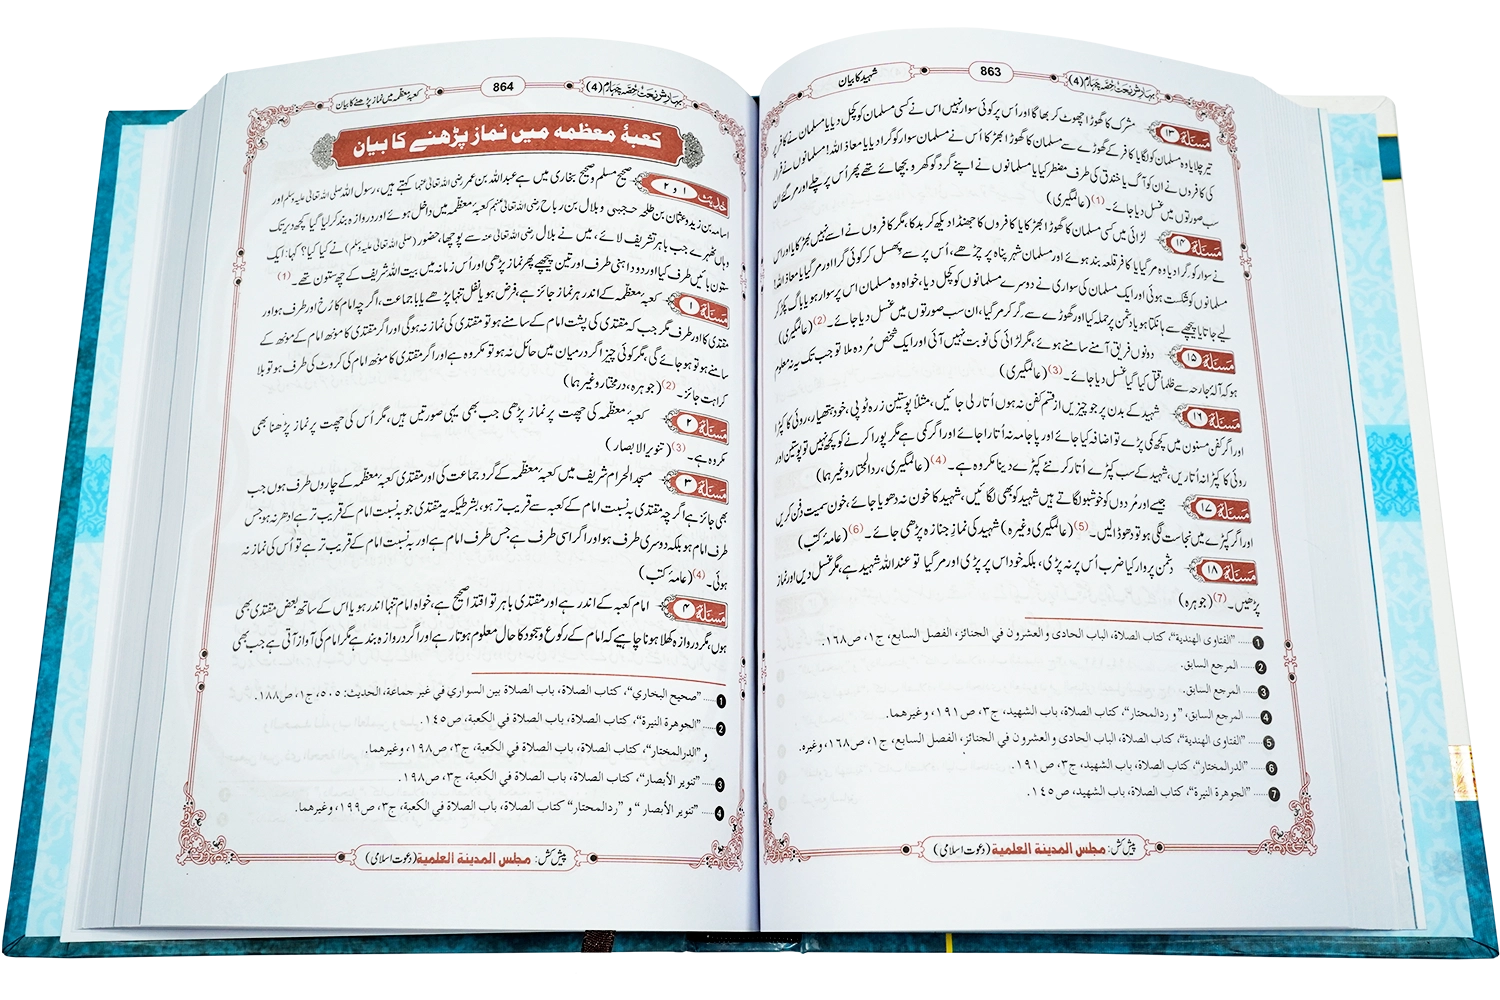 بہارِ شریعت حصّہ چہارم (4)
863
شہید کا بیان
مسئلہ ۱۳ مشرک کا گھوڑا چھوٹ کر بھاگا اور اُس پر کوئی سوار نہیں اس نے کسی مسلمان کو کچل دیا یا مسلمان نے کافر پر
تیر چلایا وہ مسلمان کو لگا یا کافر کے گھوڑے سے مسلمان کا گھوڑا بھڑکا اُس نے مسلمان سوار کو گرا دیا یا معاذ اللہ! مسلمانوں نے فرار
کی کافروں نے ان کو آگ یا خندق کی طرف مضطر کیا یا مسلمانوں نے اپنے گرد گوکھرو بچھائے تھے پھر اُس پر چلے اور مر گئے ان
سب صورتوں میں غسل دیا جائے۔(1) (عالمگیری)
مسئلہ ۱۴ لڑائی میں کسی مسلمان کا گھوڑا بھڑکا یا کافروں کا جھنڈا دیکھ کر بدکا، مگر کافروں نے اسے نہیں بھڑکایا اور اس
نے سوار کو گرا دیا وہ مر گیا یا کافر قلعہ بند ہوئے اور مسلمان شہر پناہ پر چڑھے، اُس پر سے پھسل کر کوئی گرا اور مر گیا یا معاذ اللہ!
مسلمانوں کو شکست ہوئی اور ایک مسلمان کی سواری نے دوسرے مسلمانوں کو کچل دیا، خواہ وہ مسلمان اس پر سوار ہو یا باگ پکڑ کر
لیے جاتا یا پیچھے سے ہانکتا ہو یا دشمن پر حملہ کیا اور گھوڑے سے گر کر مر گیا، ان سب صورتوں میں غسل دیا جائے۔(2) (عالمگیری)
مسئلہ ۱۵ دونوں فریق آمنے سامنے ہوئے، مگر لڑائی کی نوبت نہیں آئی اور ایک شخص مُردہ ملا تو جب تک یہ نہ معلوم
ہو کہ آلۂ جارحہ سے ظلماً قتل کیا گیا غسل دیا جائے۔(3) (عالمگیری)
مسئلہ ۱۶ شہید کے بدن پر جو چیزیں از قسم کفن نہ ہوں اُتار لی جائیں، مثلاً پوستین زرہ ٹوپی، خود ہتھیار، روئی کا کپڑا
اور اگر کفن مسنون میں کچھ کمی پڑے تو اضافہ کیا جائے اور پاجامہ نہ اُتارا جائے اور اگر کمی ہے مگر پورا کرنے کو کچھ نہیں تو پوستین اور
روئی کا کپڑا نہ اُتاریں، شہید کے سب کپڑے اُتار کر نئے کپڑے دینا مکروہ ہے۔(4) (عالمگیری، ردالمحتار وغیرہما)
مسئلہ ۱۷ جیسے اور مُردوں کو خوشبو لگاتے ہیں شہید کو بھی لگائیں، شہید کا خون نہ دھویا جائے، خون سمیت دفن کریں
اور اگر کپڑے میں نجاست لگی ہو تو دھو ڈالیں۔(5) (عالمگیری وغیرہ) شہید کی نمازِ جنازہ پڑھی جائے۔(6) (عامۂ کتب)
مسئلہ ۱۸ دشمن پر وار کیا ضرب اُس پر نہ پڑی، بلکہ خود اس پر پڑی اور مر گیا تو عند اللہ شہید ہے، مگر غسل دیں اور نماز
پڑھیں۔(7) (جوہرہ)
1 ...... "الفتاوی الهندية"، كتاب الصلاة، الباب الحادی والعشرون في الجنائز، الفصل السابع، ج۱، ص۱٦۸.
2 ...... المرجع السابق.
3 ...... المرجع السابق.
4 ...... المرجع السابق، "و ردالمحتار"، كتاب الصلاة، باب الشهيد، ج۳، ص۱۹۱، وغيرهما.
5 ...... "الفتاوى الهندية"، كتاب الصلاة، الباب الحادى والعشرون في الجنائز، الفصل السابع، ج۱، ص۱٦۸، وغيره.
6 ...... "الدرالمختار"، كتاب الصلاة، باب الشهيد، ج۳، ص۱۹۱.
7 ...... "الجوهرة النيرة"، كتاب الصلاة، باب الشهيد، ص۱٤٥.
پیش کش: مجلس المدينة العلمية (دعوت اسلامی)
بہارِ شریعت حصّہ چہارم (4)
864
کعبۂ معظمہ میں نماز پڑھنے کا بیان
کعبۂ معظمہ میں نماز پڑھنے کا بیان
حدیث ۱ و ۲ صحیح مسلم و صحیح بخاری میں ہے عبداللہ بن عمر رضی اللہ تعالیٰ عنہما کہتے ہیں، رسول اللہ صلی اللہ تعالیٰ علیہ وسلم اور
اسامہ بن زید و عثمان بن طلحہ حجبی و بلال بن رباح رضی اللہ تعالیٰ عنہم کعبۂ معظمہ میں داخل ہوئے اور دروازہ بند کر لیا گیا کچھ دیر تک
وہاں ٹھہرے جب باہر تشریف لائے، میں نے بلال رضی اللہ تعالیٰ عنہ سے پوچھا، حضور (صلی اللہ تعالیٰ علیہ وسلم) نے کیا کیا؟ کہا: ایک
ستون بائیں طرف کیا اور دو داہنی طرف اور تین پیچھے پھر نماز پڑھی اور اُس زمانہ میں بیت اللہ شریف کے چھ ستون تھے۔(1)
مسئلہ ۱ کعبۂ معظمہ کے اندر ہر نماز جائز ہے، فرض ہو یا نفل تنہا پڑھے یا با جماعت، اگرچہ امام کا رُخ اور طرف ہو اور
مقتدی کا اور طرف مگر جب کہ مقتدی کی پشت امام کے سامنے ہو تو مقتدی کی نماز نہ ہوگی اور اگر مقتدی کا مونھ امام کے مونھ کے
سامنے ہو تو ہو جائے گی، مگر کوئی چیز اگر درمیان میں حائل نہ ہو تو مکروہ ہے اور اگر مقتدی کا مونھ امام کی کروٹ کی طرف ہو تو بلا
کراہت جائز۔(2) (جوہرہ، درمختار وغیرہما)
مسئلہ ۲ کعبۂ معظمہ کی چھت پر نماز پڑھی جب بھی یہی صورتیں ہیں، مگر اُس کی چھت پر نماز پڑھنا بھی
مکروہ ہے۔(3) (تنویر الابصار)
مسئلہ ۳ مسجد الحرام شریف میں کعبۂ معظمہ کے گرد جماعت کی اور مقتدی کعبۂ معظمہ کے چاروں طرف ہوں جب
بھی جائز ہے اگرچہ مقتدی بہ نسبت امام کے کعبہ سے قریب تر ہو، بشرطیکہ یہ مقتدی جو بہ نسبت امام کے قریب تر ہے ادھر نہ ہو جس
طرف امام ہو بلکہ دوسری طرف ہو اور اگر اسی طرف ہے جس طرف امام ہے اور بہ نسبت امام کے قریب تر ہے تو اُس کی نماز نہ
ہوئی۔(4) (عامۂ کتب)
مسئلہ ۴ امام کعبہ کے اندر ہے اور مقتدی باہر تو اقتدا صحیح ہے، خواہ امام تنہا اندر ہو یا اس کے ساتھ بعض مقتدی بھی
ہوں، مگر دروازہ کھلا ہونا چاہیے کہ امام کے رکوع و سجود کا حال معلوم ہوتا رہے اور اگر دروازہ بند ہے مگر امام کی آواز آتی ہے جب بھی
1 ...... "صحيح البخاري"، كتاب الصلاة، باب الصلاة بين السواري في غير جماعة، الحديث: ٥٠٥، ج۱، ص۱۸۸.
2 ...... "الجوهرة النيرة"، كتاب الصلاة، باب الصلاة في الكعبة، ص۱٤٥.
و "الدرالمختار"، كتاب الصلاة، باب الصلاة في الكعبة، ج۳، ص۱۹۸، وغيرهما.
3 ...... "تنوير الأبصار"، كتاب الصلاة، باب الصلاة في الكعبة، ج۳، ص۱۹۸.
4 ...... "تنوير الأبصار" و "ردالمحتار" كتاب الصلاة، باب الصلاة في الكعبة، ج۳، ص۱۹۹، وغيرهما.
پیش کش: مجلس المدينة العلمية (دعوت اسلامی)